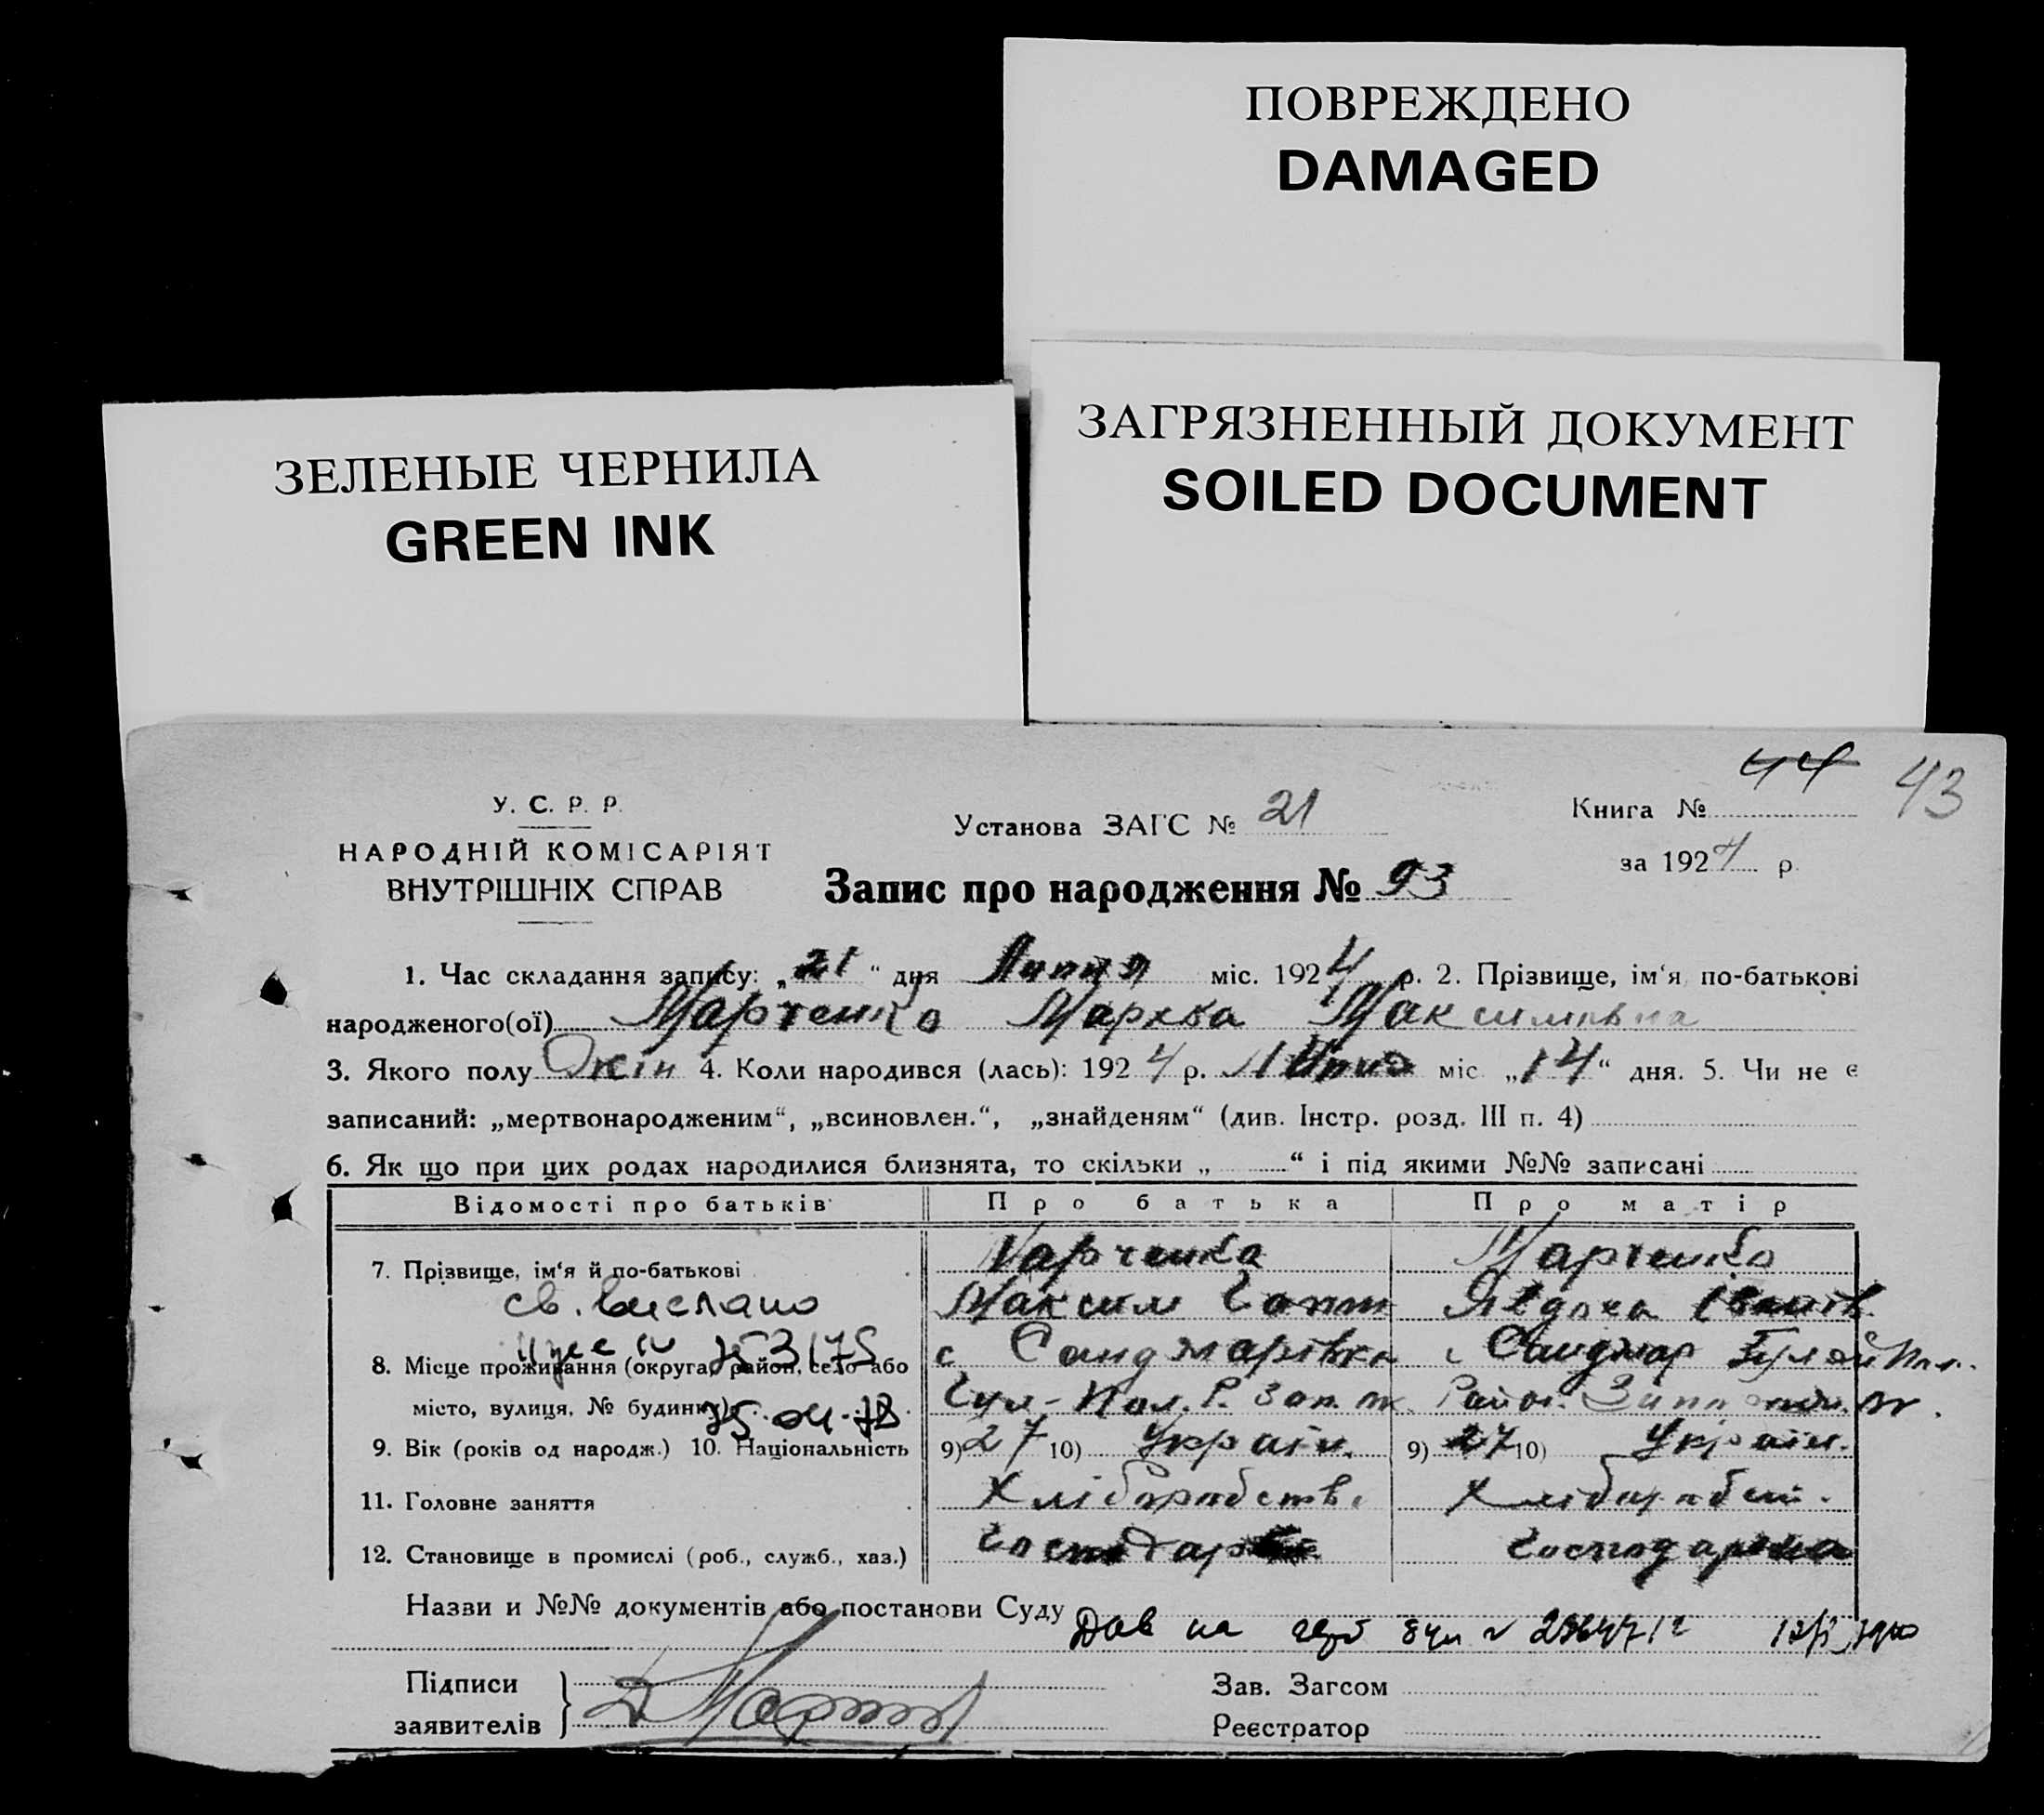 ПОВРЕЖДЕНО
DAMAGED
ЗЕЛЕНЫЕ ЧЕРНИЛА
GREEN INK
ЗАГРЯЗНЕННЫЙ ДОКУМЕНТ
SOILED DOCUMENT
44 43
У. С. Р. Р.
НАРОДНІЙ КОМІСАРІЯТ
ВНУТРІШНІХ СПРАВ
Установа ЗАГС № 21
Книга №
за 1924 р.
Запис про народження № 93
1. Час складання запису: „21“ дня Липця міс. 1924 р. 2. Прізвище, ім‘я по-батькові
народженого(ої) Марченко Максимівна
3. Якого полу Жін 4. Коли народився (лась): 1924 р. міс. „14“ дня. 5. Чи не є
записаний: „мертвонародженим“, „всиновлен.“, „знайденям“ (див. Інстр. розд. III п. 4)
6. Як що при цих родах народилися близнята, то скільки „ “ і під якими №№ записані
Відомості про батьків Про батька Про матір
7. Прізвище, ім‘я й по-батькові Марченко Марченко
св. выслано Максим Явдоха
8. Місце проживання (округа, район, село або с
місто, вулиця, № будинку) Гул-Пол. Р. Зап.
9. Вік (років од народж.) 10. Національність 9) 27 10) Україн. 9) 27 10) Україн.
11. Головне заняття Хліборобств.
12. Становище в промислі (роб., служб., хаз.) Господар Господарка
Назви и №№ документів або постанови Суду
Підписи
заявителів
Зав. Загсом
Реєстратор